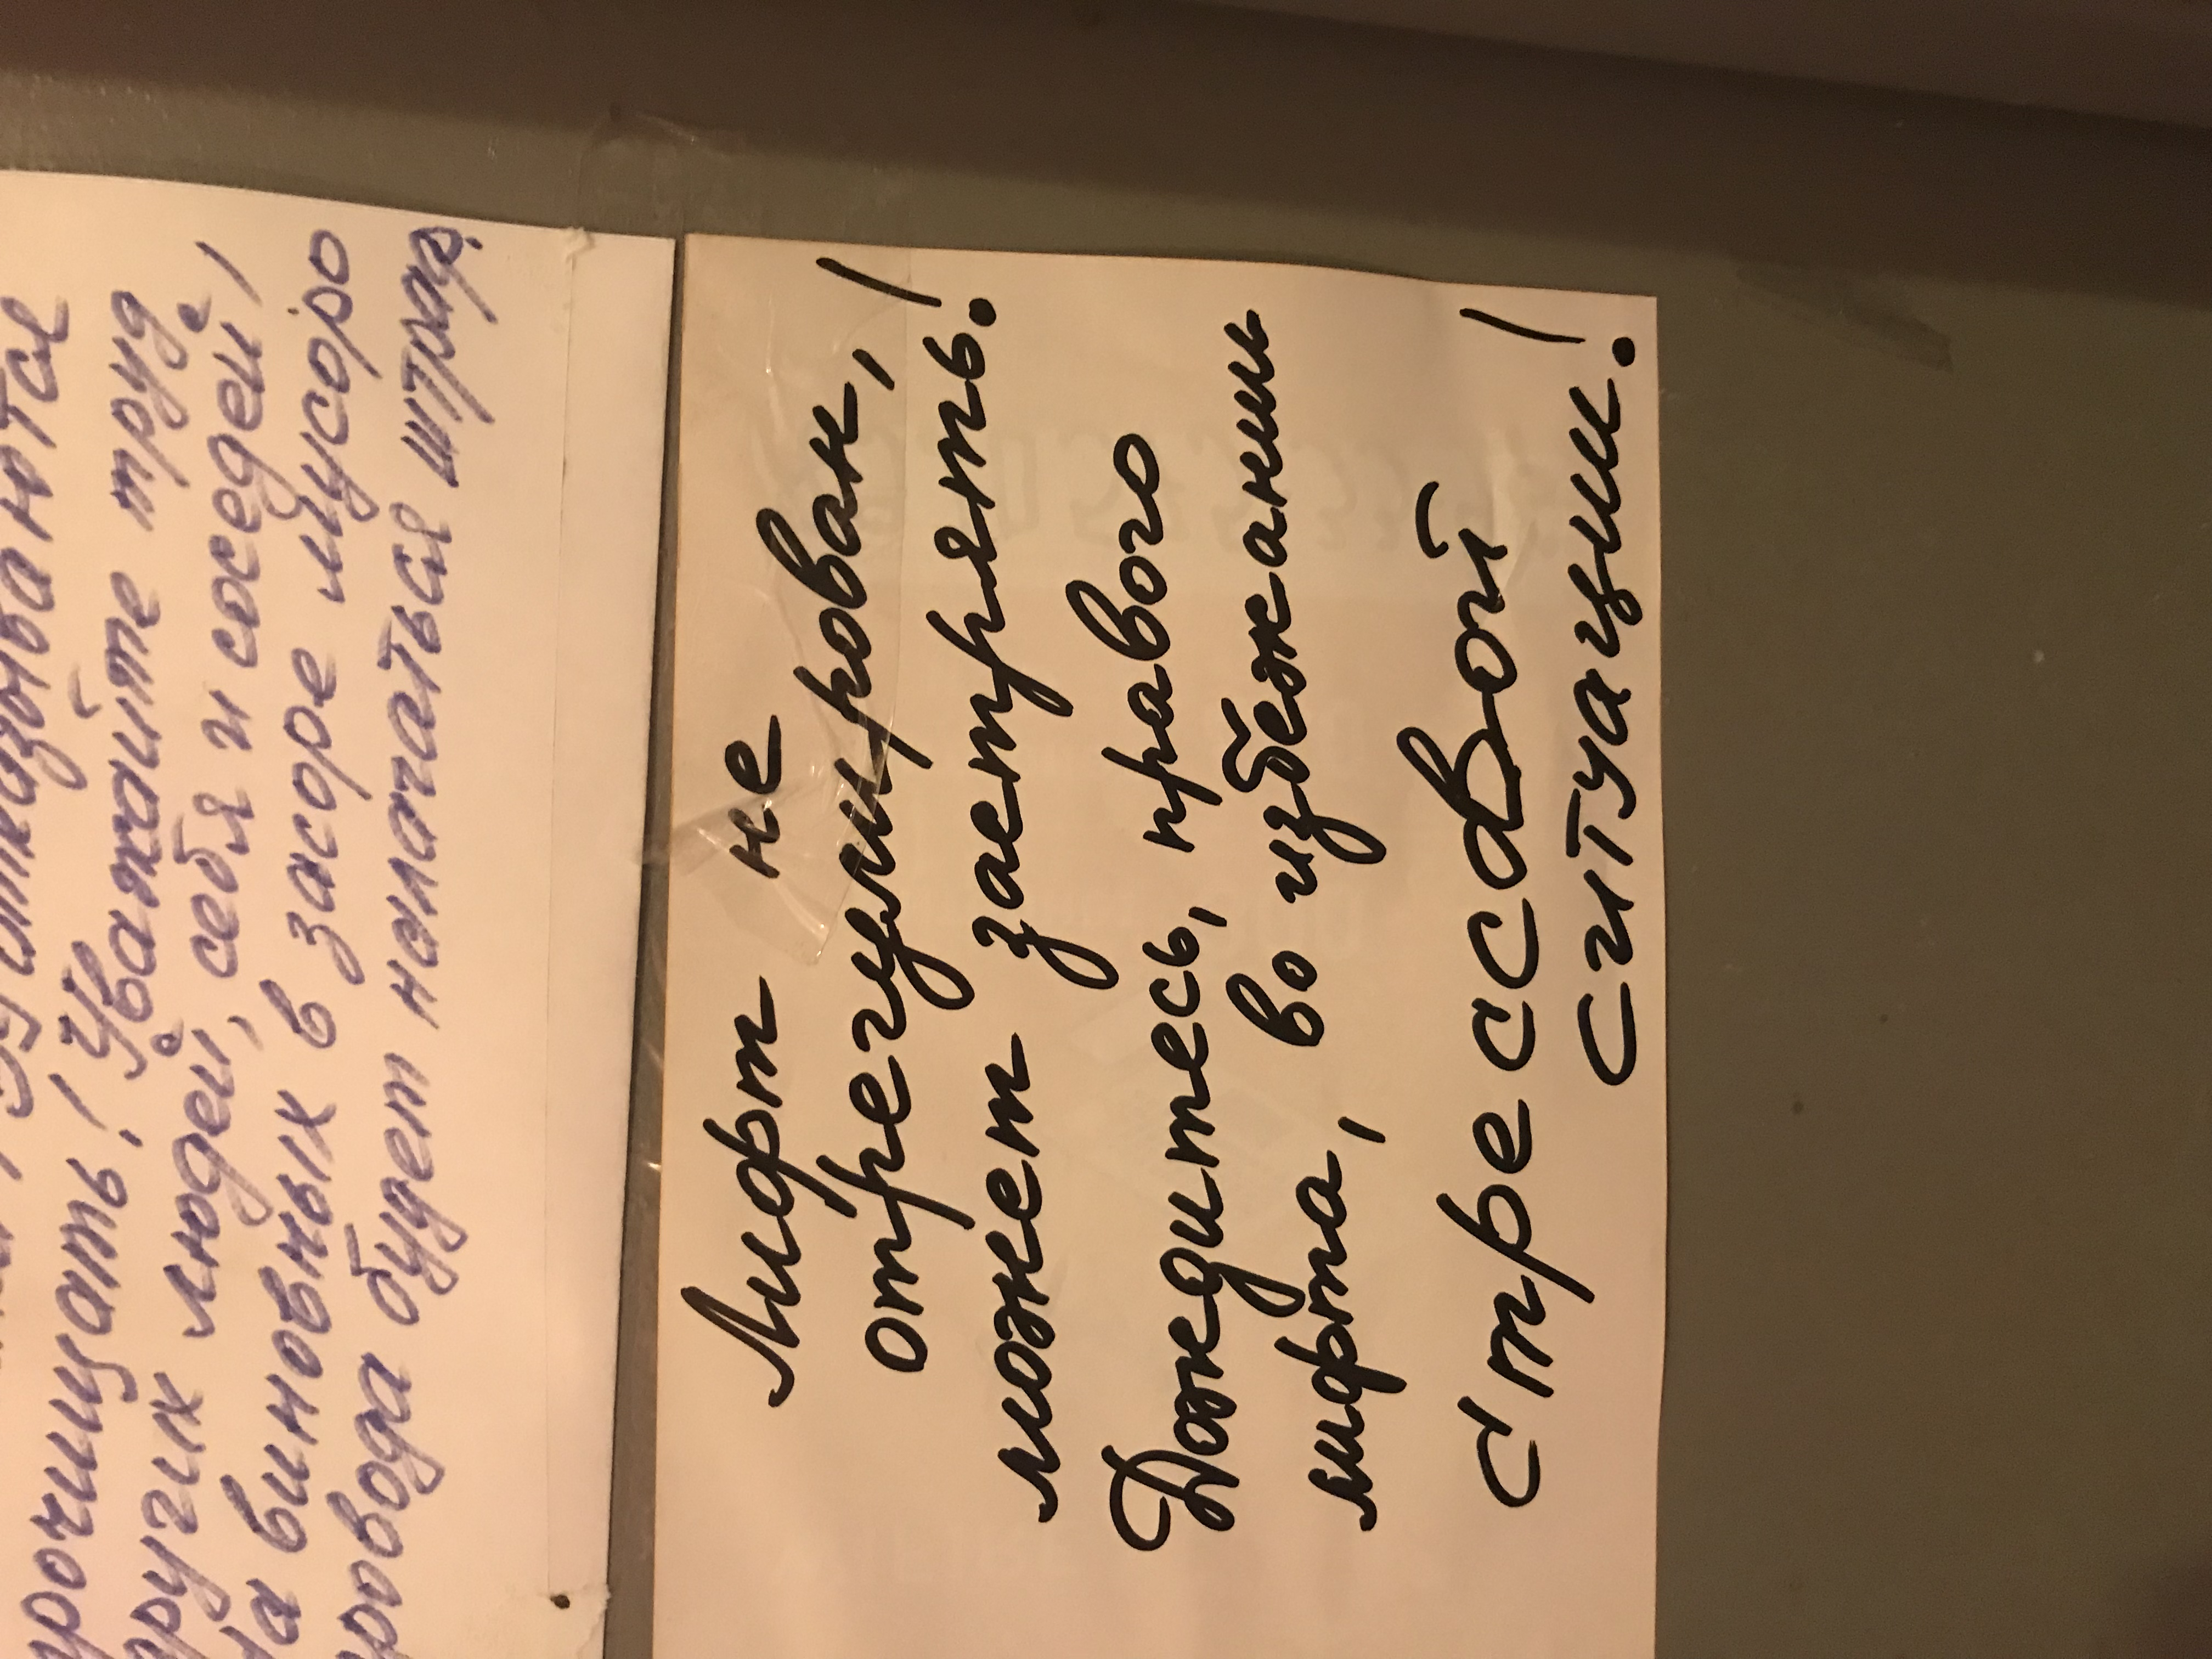 прочищать! Уважайте труд
других людей, себя и соседей!
На виновных в засоре мусоро
провода будет налагаться штраф.
Лифт не
отрегулирован,
может застрять!
Дождитесь, правого
лифта, во избежании
стрессовой
ситуации!